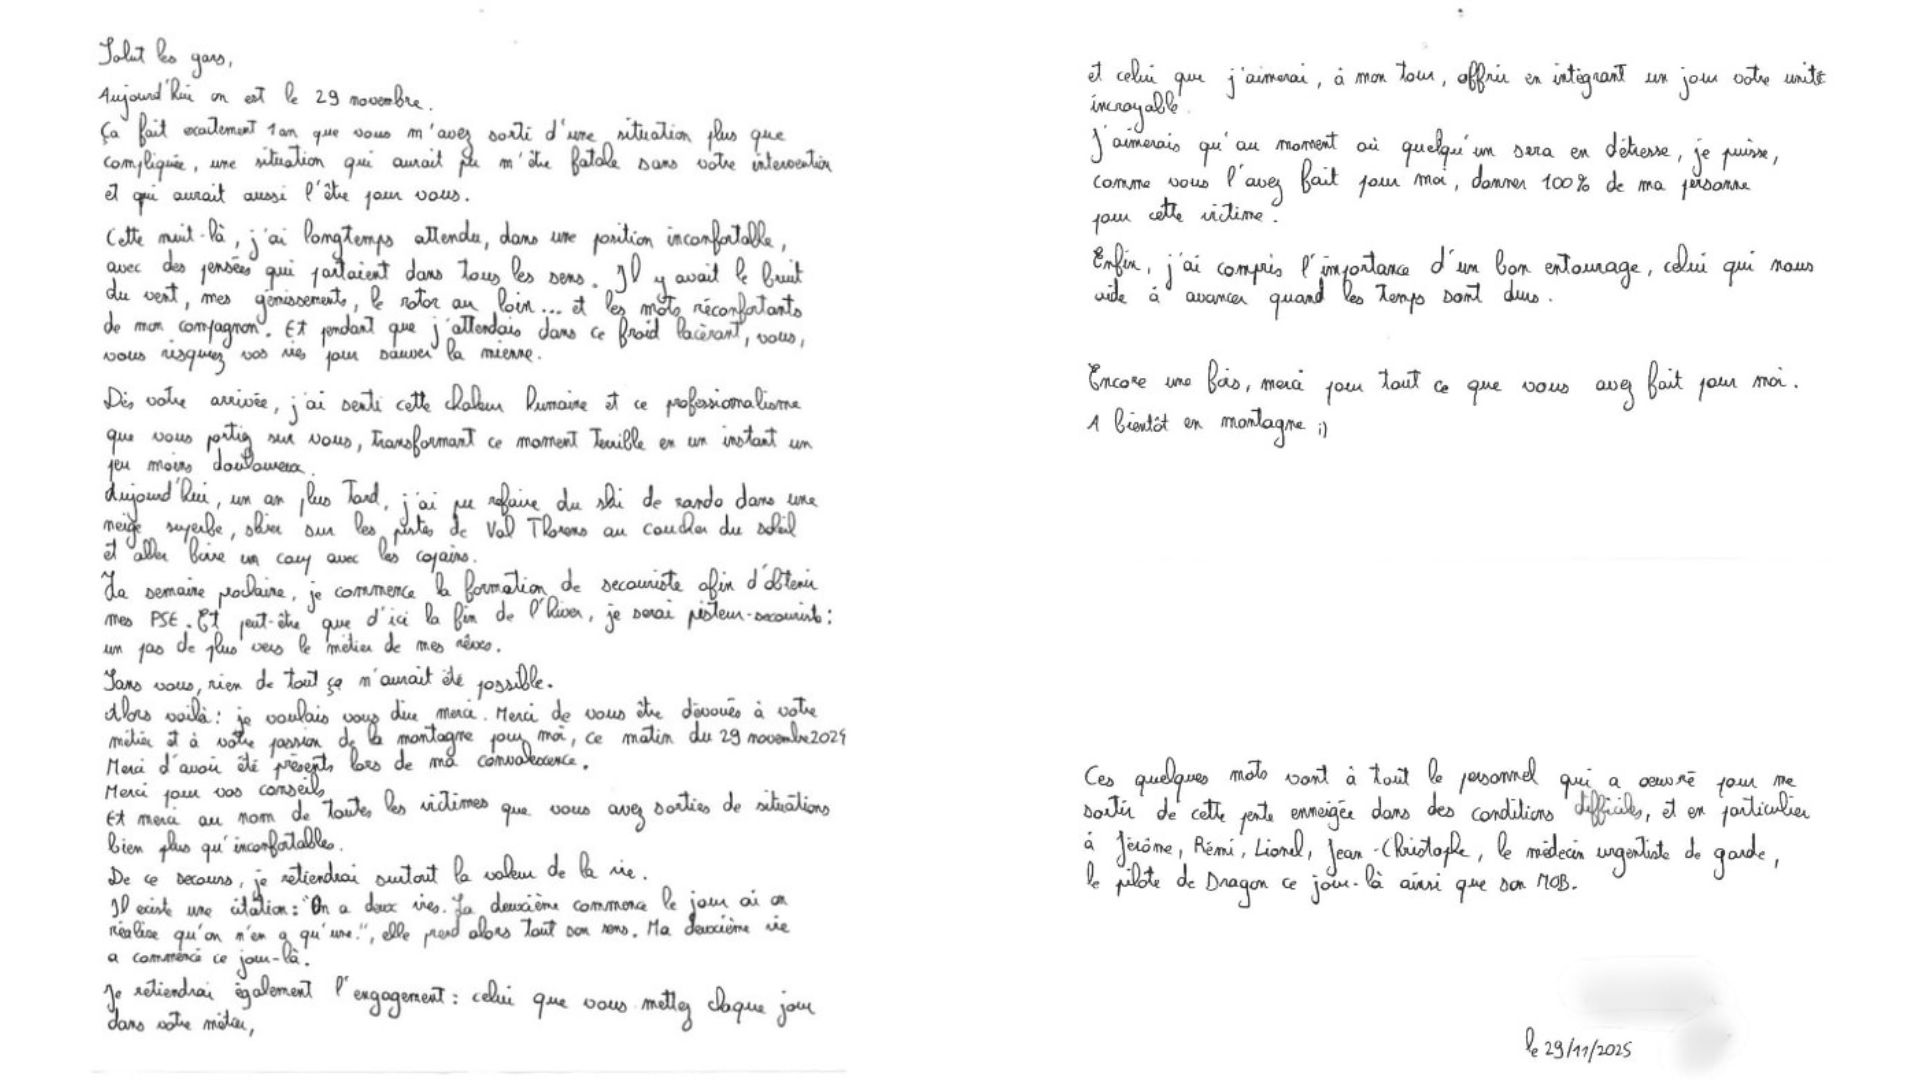 Salut les gars,
Aujourd'hui on est le 29 novembre.
Ça fait exactement 1 an que vous m'avez sorti d'une situation plus que
compliquée, une situation qui aurait pu m'être fatale sans votre intervention
et qui aurait aussi l'être pour vous.
Cette nuit-là, j'ai longtemps attendu, dans une position inconfortable,
avec des pensées qui partaient dans tous les sens. Il y avait le bruit
du vent, mes gémissements, le rotor au loin... et les mots réconfortants
de mon compagnon. Et pendant que j'attendais dans ce froid lacérant, vous,
vous risquiez vos vies pour sauver la mienne.
Dès votre arrivée, j'ai senti cette chaleur humaine et ce professionnalisme
que vous portiez sur vous, transformant ce moment terrible en un instant un
peu moins douloureux.
Aujourd'hui, un an plus tard, j'ai pu refaire du ski de rando dans une
neige superbe, skier sur les pistes de Val Thorens au coucher du soleil
et aller boire un coup avec les copains.
La semaine prochaine, je commence la formation de secouriste afin d'obtenir
mes PSE. Et peut-être que d'ici la fin de l'hiver, je serai pisteur-secouriste :
un pas de plus vers le métier de mes rêves.
Sans vous, rien de tout ça n'aurait été possible.
Alors voilà : je voulais vous dire merci. Merci de vous être dévoués à votre
métier et à votre passion de la montagne pour moi, ce matin du 29 novembre 2024
Merci d'avoir été présents lors de ma convalescence.
Merci pour vos conseils
Et merci au nom de toutes les victimes que vous avez sorties de situations
bien plus qu'inconfortables.
De ce secours, je retiendrai surtout la valeur de la vie.
Il existe une citation : "On a deux vies. La deuxième commence le jour où on
réalise qu'on n'en a qu'une.", elle prend alors tout son sens. Ma deuxième vie
a commencé ce jour-là.
Je retiendrai également l'engagement : celui que vous mettez chaque jour
dans votre métier,
et celui que j'aimerai, à mon tour, offrir en intégrant un jour votre unité
incroyable.
J'aimerais qu'au moment où quelqu'un sera en détresse, je puisse,
comme vous l'avez fait pour moi, donner 100% de ma personne
pour cette victime.
Enfin, j'ai compris l'importance d'un bon entourage, celui qui nous
aide à avancer quand les temps sont durs.
Encore une fois, merci pour tout ce que vous avez fait pour moi.
A bientôt en montagne ;)
Ces quelques mots vont à tout le personnel qui a oeuvré pour me
sortir de cette pente enneigée dans des conditions difficiles, et en particulier
à Jérôme, Rémi, Lionel, Jean-Christophe, le médecin urgentiste de garde,
le pilote de Dragon ce jour-là ainsi que son MOB.
le 29/11/2025